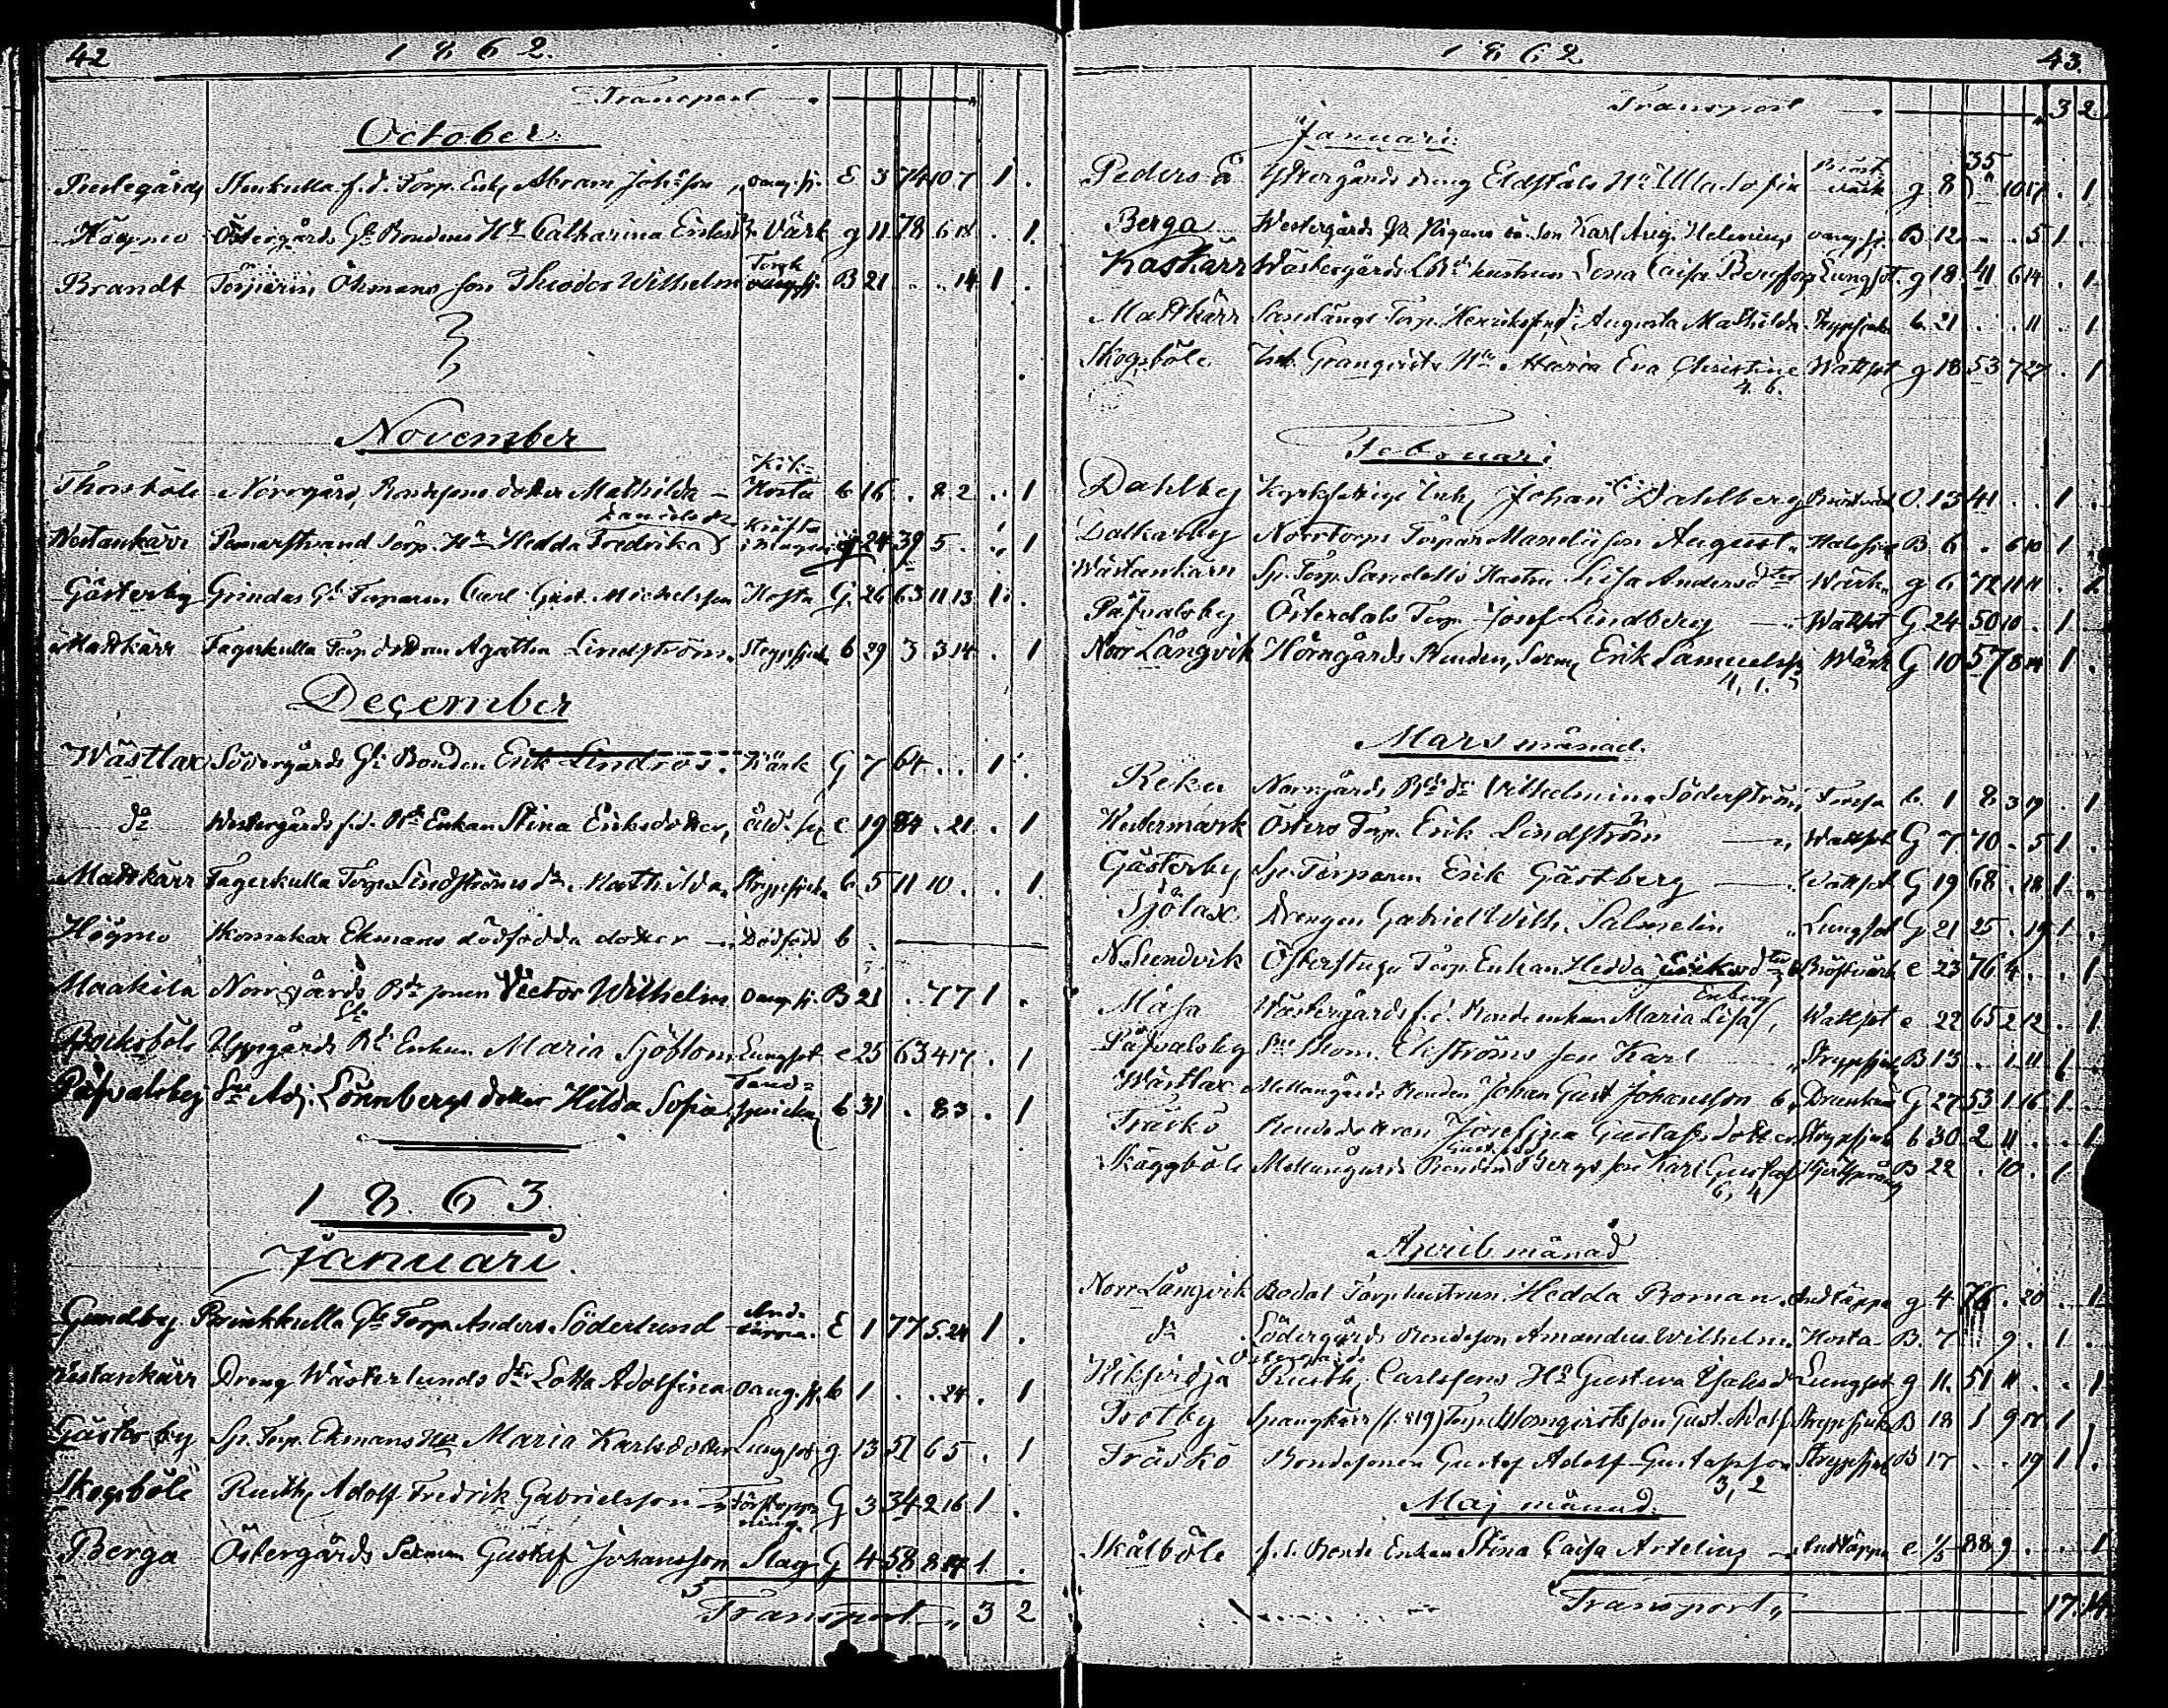 42 1862.
Transport
October.
Prestegård Stenkulla f. d. Torp. Enkl. Abram Johsson oang. sj. E 3 74 10 7 1 .
Högmo Östergårds Gl. Bondens Hu Catharina Eriksd. Värk g 11 78 6 18 . 1.
Brandt Torparin Öhmans son Theodor Wilhelm Torsk oang. sj. B 21 . . 14 1 .
November
Kik-
Thorsböle Norrgård, Bondesons dotter Mathilda Hosta b 16 . 8 2 . 1
Danielsdr. Kräfta
Westankärr Pemarstrand Torp. Hu Hedda Fredrika i Magen g 24 39 5 . . 1
Gästerby Grindas Gl. Torparen Carl Gust. Michelsson Hosta G. 26 63 11 13 1 .
Mattkärr Fagerkulla Torp. dottran Agatha Lindström. Strypsjuk b 29 3 3 14 . 1
December
Wästlax Södergårds Gl. Bonden Erik Lindros. Värk G 7 64 . . 1 .
do Westergårds f.d. Bde Enkan Stina Eriksdotter, åld. e 19 84 . 21 . 1
Mattkärr Fagerkulla Torp. Lindströms dr Mathilda Strypsjuka b 5 11 10 . . 1
Högmo Skomakar Ekmans dödfödda dotter Dödfödd b .
Maakila Norrgårds Bde sonen Victor Wilhelm oang. sj. B 21 . 7 7 1 .
Bocksböle Uppgårds Bde Enkan Maria Sjöblom Lungsot e 25 63 4 17 . 1
Påfvalsby Adj. Lönnbergs dotter Hilda Sofia Tand-sprickn. b 31 . 8 3 . 1
1863.
Januari.
Gundby Brinkkulla Gl. Torp. Anders Söderlund And- E 1 77 5 24 1 .
Westankärr Dreng Wästerlunds dr Lotta Adolfina oang. sj. b 1 . . 24 . 1
Gästerby Sp. Torp. Ekmans Hu Maria Karlsdotter Lungsot g 13 51 6 5 . 1
Skogsböle Rusth. Adolf Fredrik Gabrielsson Förstoppning. G 3 34 2 16 1 .
Berga Östergårds Sexman Gustaf Johansson Slag G 4 58 8 14 1 .
Transport 3 2
1862 43.
Transport 3 2.
Januari.
Peders-å Yttergårds dreng Eldståls Hu Ulla Sofia Bröst-värk g 8 35 10 17 . 1
Berga Westergårds son Karl Aug. Helenius oang. sj. B. 12 . . 5 1 .
Kaskärr Wästergårds hustrun Lena Caisa Bergsson Lungsot. g 18. 41 6 14 . 1
Mattkärr Sandängs Torp. Henrikss. dr Augusta Mathilda Strypsjuka b. 21 . . 11 . 1
Skogsböle Inh. Granqvists Hu Maria Eva Christine Wattsot g 18 53 7 27 . 1
4. 6.
Februari
Dahlby Kyrkofattige Inh. Johan Dahlberg Bröstvärk O. 13 41 . . 1 .
Dalkarby Norrtorps Torpar Mandis son August Halssjuk B 6 . 6 10 1 .
Wästankärr Sp. Torp. Sandells Hustru Lisa Andersdter Wärk g 6 72 11 11 . 1
Påfvalsby Österdals Torp. Josef Lindberg Wattsot G 24 50 10 . 1 .
Norr Långvik Hörngårds Bonden, Sexm. Erik Samuelss. Wärk G 10 57 8 14 1 .
4, 1.
Mars månad.
Reku Norrgårds Bde dr Vilhelmina Söderström, b. 1 8 3 19 . 1
Hutermark Östers Torp. Erik Lindström Wattsot G 7. 70 . 5 1 .
Gästerby Sp. Torparen Erik Gästberg Wattsot G 19 68 . 18 1 .
Sjölax Drengen Gabriel Wilh. Salmelin Lungsot G 21 25 . 19 1 .
N. Sundvik Österstuga Torp. Enkan Hedda Eriksdter Bröstvärk e 23 76 4 . . 1
Enberg
Måsa Wästergårds f. d. Bonde enkan Maria Lisa Wattsot e 22 65 2 12 . 1
Påfvalsby Ekströms son Karl Strypsjuk B 13 . 1 11 1 .
Wästlax Mellangårds Bonden Johan Gust. Johansson Drunknad G 27 53 1 16 1 .
Träskö Bondedottren Josefina Gustafsdotter Strypsjuk b 30 2 11 . . 1
Skäggböle Mellangårds Bonden Bergs son Karl Gustaf B 22 . 10 . 1
6, 4
April månad
Norr Långvik Bodal Torp. hustrun Hedda Boman. Andtäppa g 4 76 . 20 . 1
do Södergårds Bondeson Amandus Wilhelm. Hosta B. 7 . 9 . 1 .
Rusth. Carlssons Hu Gustava Lungsot g 11. 51 11 . . 1
Trotby Spångkärr Torp. Blomqvists son Gust. Adolf Strypsjuk B 18 1 9 11 1
Träskö Bondesonen Gustaf Adolf Gustafsson Strypsjuk B 17 . . 19 1 .
3, 2
Maj månad.
Skålböle f. d. Bonde Enkan Stina Caisa Artelius Andtäppa e. 1/5 88 9 . . 1
Transport 17. 14.